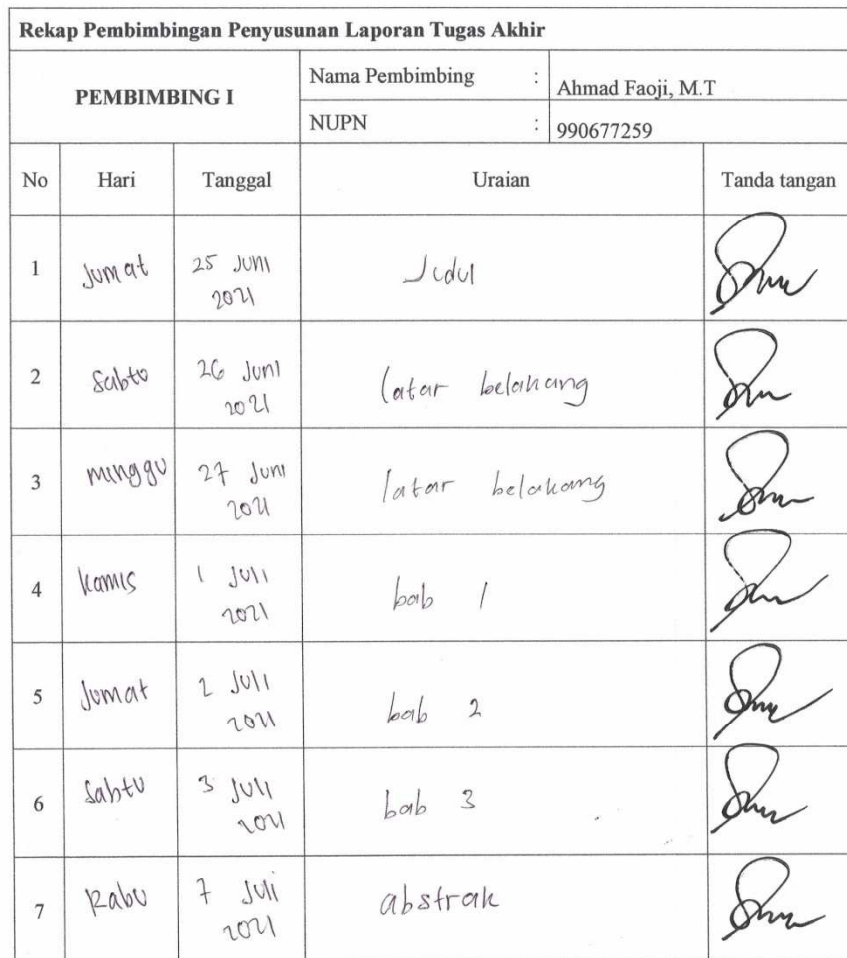 Rekap Pembimbingan Penyusunan Laporan Tugas Akhir
PEMBIMBING I
Nama Pembimbing : Ahmad Faoji, M.T
NUPN : 990677259
No Hari Tanggal Uraian Tanda tangan
1 Jumat 25 Juni 2021 Judul
2 Sabtu 26 Juni 2021 latar belakang
3 minggu 27 Juni 2021 latar belakang
4 kamis 1 Juli 2021 bab 1
5 Jumat 2 Juli 2021 bab 2
6 Sabtu 3 Juli 2021 bab 3
7 Rabu 7 Juli 2021 abstrak